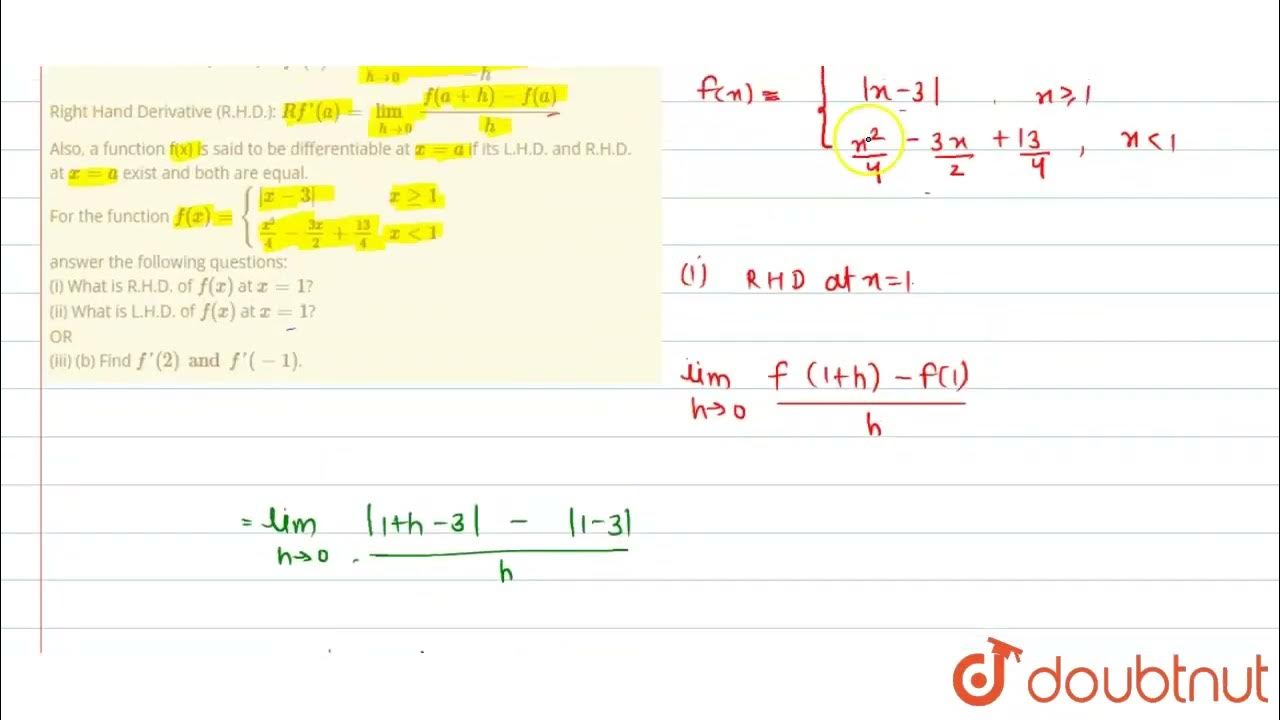 h→0 −h
Right Hand Derivative (R.H.D.): Rf'(a) = lim h→0 f(a + h) − f(a) / h
Also, a function f(x) is said to be differentiable at x = a if its L.H.D. and R.H.D.
at x = a exist and both are equal.
For the function f(x) = { |x − 3| x ≥ 1
x²/4 − 3x/2 + 13/4, x < 1
answer the following questions:
(i) What is R.H.D. of f(x) at x = 1?
(ii) What is L.H.D. of f(x) at x = 1?
OR
(iii) (b) Find f'(2) and f'(−1).
f(x) = { |x−3| , x ≥ 1
x²/4 − 3x/2 + 13/4 , x < 1
(i) RHD at x=1
lim h→0 f (1+h) − f(1) / h
= lim h→0 |1+h−3| − |1−3| / h
doubtnut